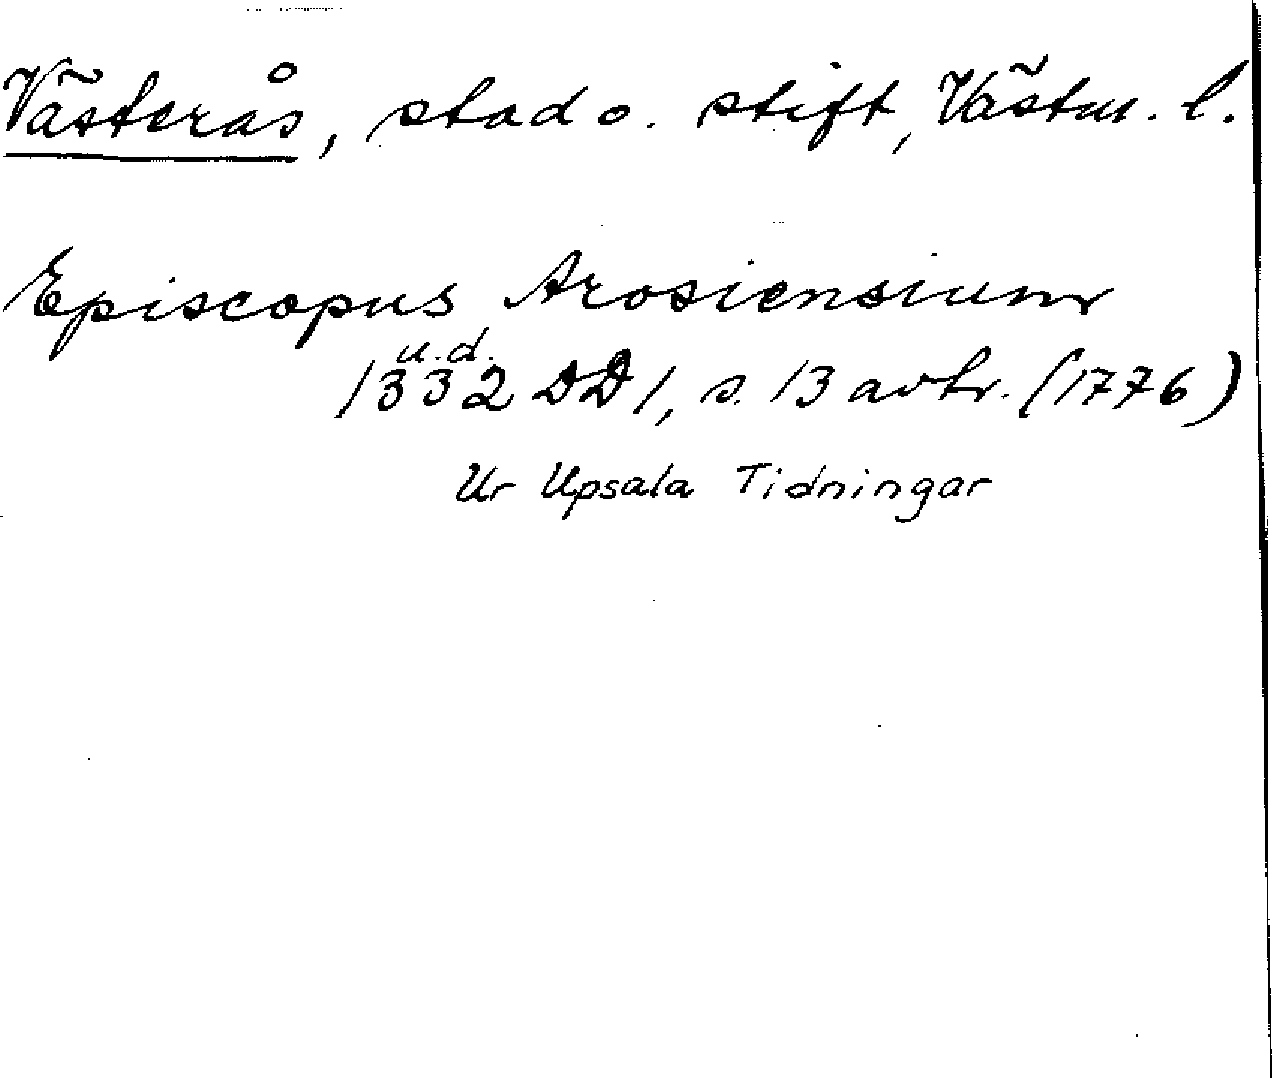 Västerås, stad o. stift, Västm. l.
Episcopus Arosiensium
u.d.
1332 DD 1, s. 13 avtr. (1776)
Ur Upsala Tidningar